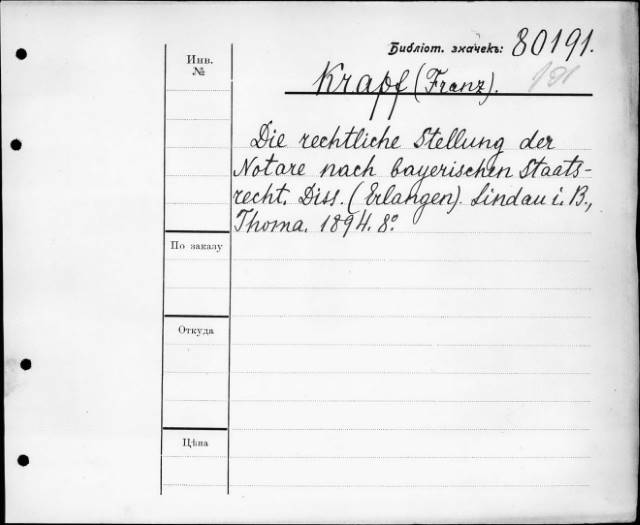 Библіот. значекъ: 80191.
Инв.
№
Krapf (Franz).
Die rechtliche Stellung der
Notare nach bayerischen Staats-
recht. Diss. (Erlangen). Lindau i. B.,
Thoma. 1894. 8°
По заказу
Откуда
Цѣна